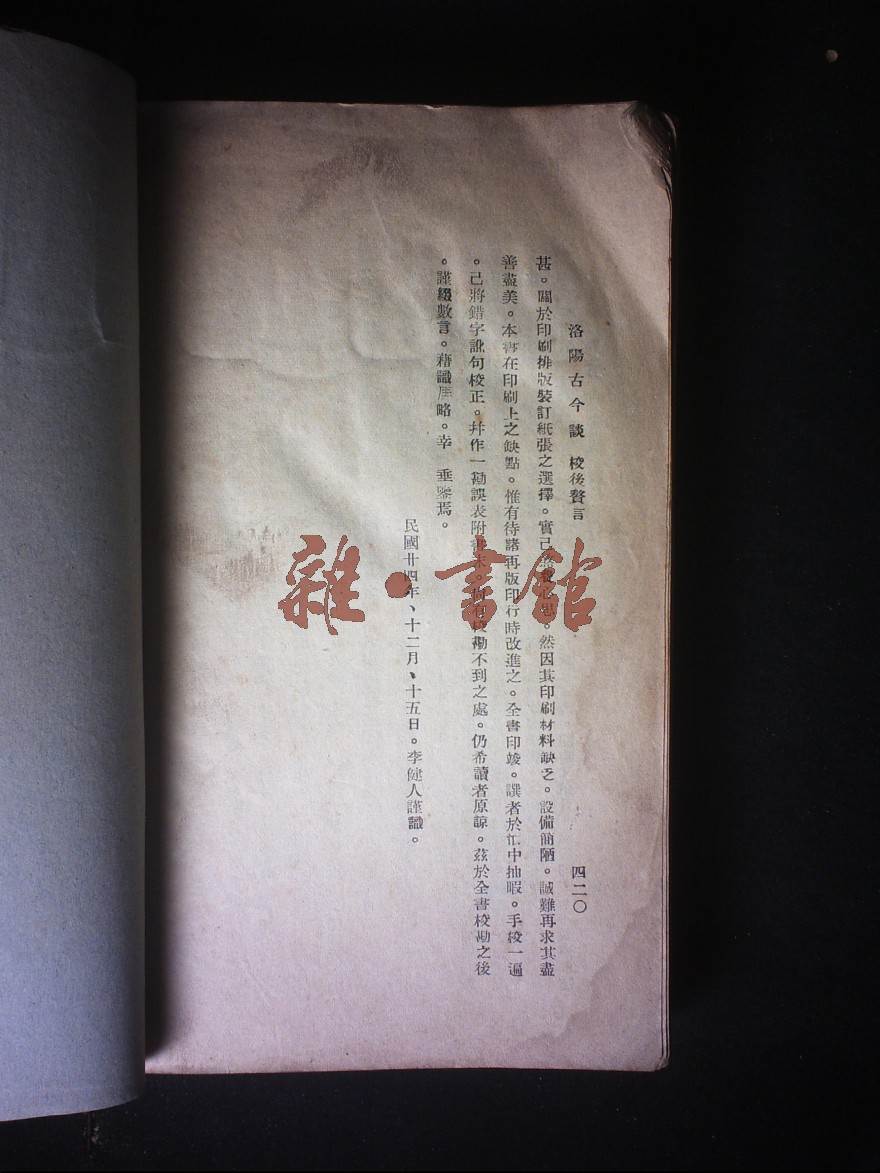 洛陽古今談 校後贅言 四二〇
甚。關於印刷排版裝訂紙張之選擇。實已 。然因其印刷材料缺乏。設備簡陋。誠難再求其盡
善盡美。本書在印刷上之缺點。惟有待諸再版印行時改進之。全書印竣。譔者於忙中抽暇。手校一遍
。己將錯字訛句校正。幷作一勘誤表附書末。 校勘不到之處。仍希讀者原諒。茲於全書校勘之後
。謹綴數言。藉識厓略。幸 垂鑒焉。
民國廿四年、十二月、十五日。李健人謹識。
雜·書館